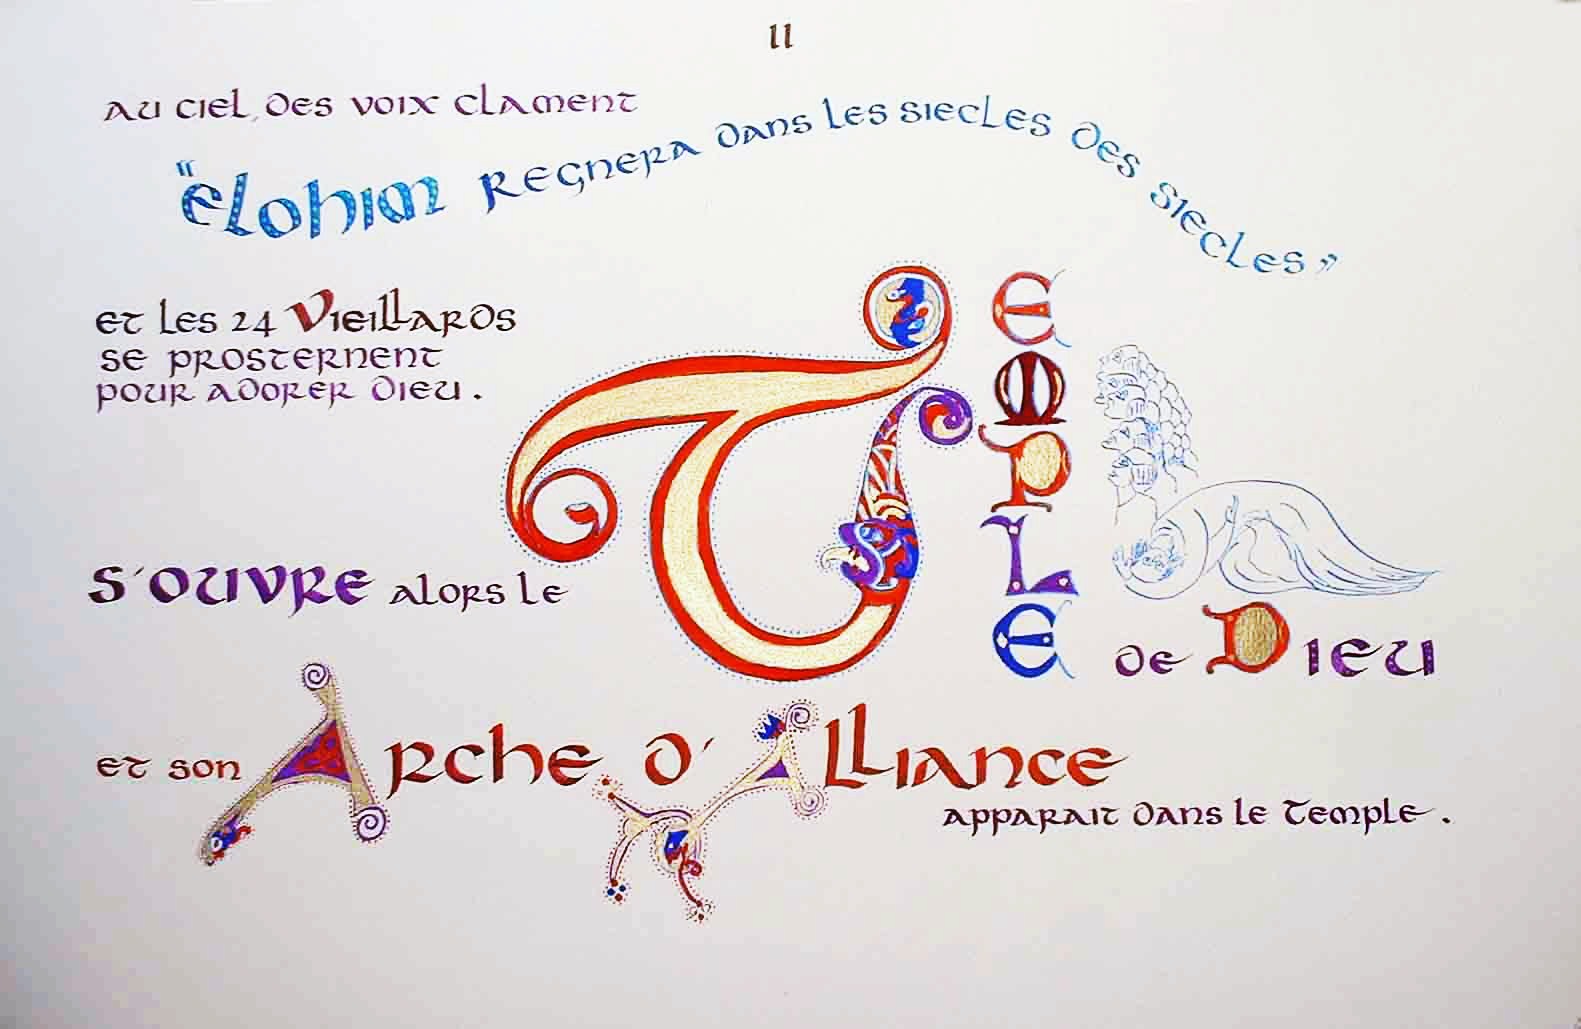 11
au ciel, des voix clament
"Elohim regnera dans les siecles des siecles"
et les 24 Vieillards
se prosternent
pour adorer Dieu.
s'ouvre alors le Temple de Dieu
et son Arche d'Alliance
apparait dans le Temple.